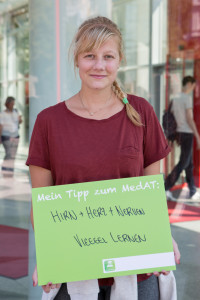 Mein Tipp zum MedAT:
HIRN + HERZ + NERVEN
VIEEEL LERNEN